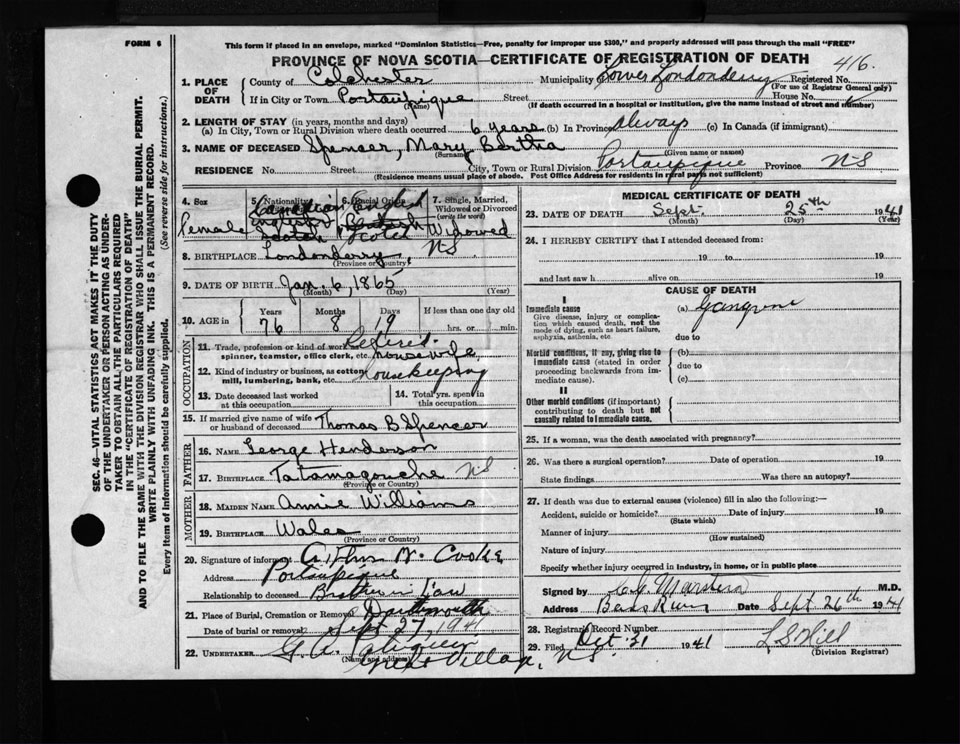 FORM 6
This form if placed in an envelope, marked "Dominion Statistics—Free, penalty for improper use $300," and properly addressed will pass through the mail "FREE"
PROVINCE OF NOVA SCOTIA—CERTIFICATE OF REGISTRATION OF DEATH 416.
1. PLACE OF DEATH { County of Colchester Municipality of Lower Londonderry Registered No.
(For use of Registrar General only)
If in City or Town Portaupique Street House No.
(Name) (If death occurred in a hospital or institution, give the name instead of street and number)
2. LENGTH OF STAY (in years, months and days)
(a) In City, Town or Rural Division where death occurred 6 years (b) In Province Always (c) In Canada (if immigrant)
3. NAME OF DECEASED Spencer, Mary Bertha
(Surname) (Given name or names)
RESIDENCE No. Street City, Town or Rural Division Portaupique Province N-S
(Residence means usual place of abode. Post Office Address for residents in rural parts not sufficient)
4. Sex Female
5. Nationality Canadian
6. Racial Origin
7. Single, Married, Widowed or Divorced (write the word) Widowed
8. BIRTHPLACE Londonderry, NS
(Province or Country)
9. DATE OF BIRTH Jan. 6, 1865
(Month) (Day) (Year)
10. AGE in Years 76 Months 8 Days 19 If less than one day old hrs. or min.
OCCUPATION
11. Trade, profession or kind of work as spinner, teamster, office clerk, etc. Retired. housewife
12. Kind of industry or business, as cotton mill, lumbering, bank, etc. Housekeeping
13. Date deceased last worked at this occupation
14. Total yrs. spent in this occupation
15. If married give name of wife or husband of deceased Thomas B Spencer
FATHER
16. NAME George Henderson
17. BIRTHPLACE Tatamagouche NS
(Province or Country)
MOTHER
18. MAIDEN NAME Annie Williams
19. BIRTHPLACE Wales
(Province or Country)
20. Signature of informant N. Cooke
Address Portaupique
Relationship to deceased Brother in law
21. Place of Burial, Cremation or Removal Dartmouth
Date of burial or removal Sept 27, 1941
22. UNDERTAKER G.A.
(Name and address) Village, N.S.
MEDICAL CERTIFICATE OF DEATH
23. DATE OF DEATH Sept. 25th 1941
(Month) (Day) (Year)
24. I HEREBY CERTIFY that I attended deceased from:
19 to 19
and last saw h alive on 19
CAUSE OF DEATH
I
Immediate cause
Give disease, injury or complication which caused death, not the mode of dying, such as heart failure, asphyxia, asthenia, etc
(a) Gangrene
due to
Morbid conditions, if any, giving rise to immediate cause (stated in order proceeding backwards from immediate cause).
(b)
due to
(c)
II
Other morbid conditions (if important) contributing to death but not causally related to immediate cause.
25. If a woman, was the death associated with pregnancy?
26. Was there a surgical operation? Date of operation 19
State findings Was there an autopsy?
27. If death was due to external causes (violence) fill in also the following:—
Accident, suicide or homicide? Date of injury 19
(State which)
Manner of injury
(How sustained)
Nature of injury
Specify whether injury occurred in Industry, in home, or in public place
Signed by Marsters M.D.
Address Bass River Date Sept 26th 1941
28. Registrar's Record Number
29. Filed Oct. 31 1941 L S Hill
(Division Registrar)
SEC. 46—VITAL STATISTICS ACT MAKES IT THE DUTY
OF THE UNDERTAKER OR PERSON ACTING AS UNDER-
TAKER TO OBTAIN ALL THE PARTICULARS REQUIRED
IN THE "CERTIFICATE OF REGISTRATION OF DEATH"
AND TO FILE THE SAME WITH THE DIVISION REGISTRAR WHO SHALL ISSUE THE BURIAL PERMIT.
WRITE PLAINLY WITH UNFADING INK. THIS IS A PERMANENT RECORD.
Every item of information should be carefully supplied. (See reverse side for instructions.)